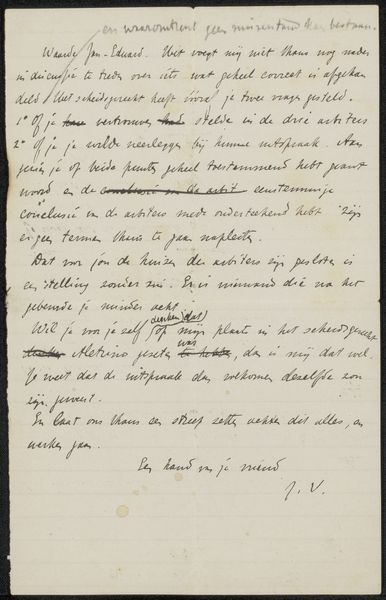 en waaromtrent geen misverstand kan bestaan.
Waarde Jan-Eduard. Het voegt mij niet thans nog nader
in discussie te treden over iets wat geheel correct is afgehan
deld. Het scheidsgerecht heeft vooraf je twee vragen gesteld.
1° of je vertrouwen stelde in de drie arbiters
2° of je je wilde neerleggen bij hunne uitspraak. Aan
gezien je op beide punten geheel toestemmend hebt geant
woord en de conclusie van de arbit eenstemmige
conclusie van de arbiters mede onderteekend hebt zijn
er geen termen thans te gaan napleiten.
Dat voor jou de huizen der arbiters zijn gesloten is
een stelling zonder zin. Er is niemand die na het
gebeurde je minder acht.
Wil je voor je zelf denken (dat) op mijn plaats in het scheidsgerecht
Aletrino gezeten was te hebben, dan is mij dat wel.
Je weet dat de uitspraak dan volkomen dezelfde zou
zijn geweest.
En laat ons thans een streep zetten achter dit alles, en
werken gaan.
Een hand van je vriend
J. V.